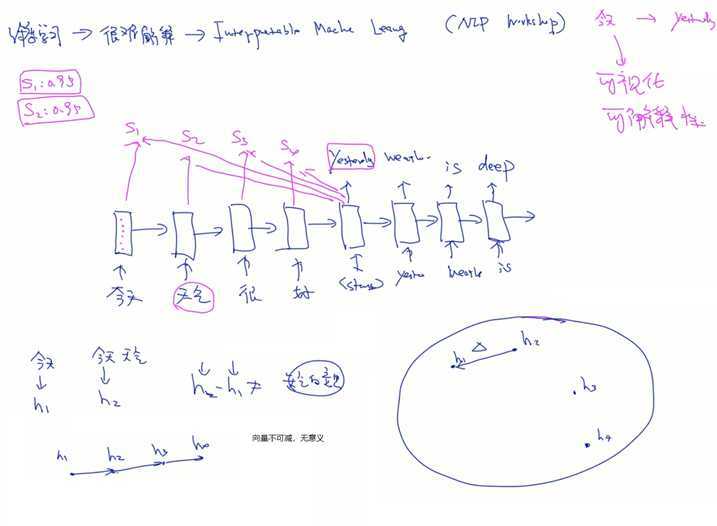 → 很难解释 → Interpretable Mache Leang (NLP Workshop)
今天 → Yesterday
可视化
可解释性
S₁: 0.95
S₂: 0.95
S₁ S₂ S₃ S₄
Yesterday weath. is deep
今天 天气 很 <start> yester weath is
今天 今天 天气
h₁ h₂ h₂-h₁ ≠
h₁ h₂ h₃
向量不可减,无意义
h₁ Δ h₂
h₃
h₄